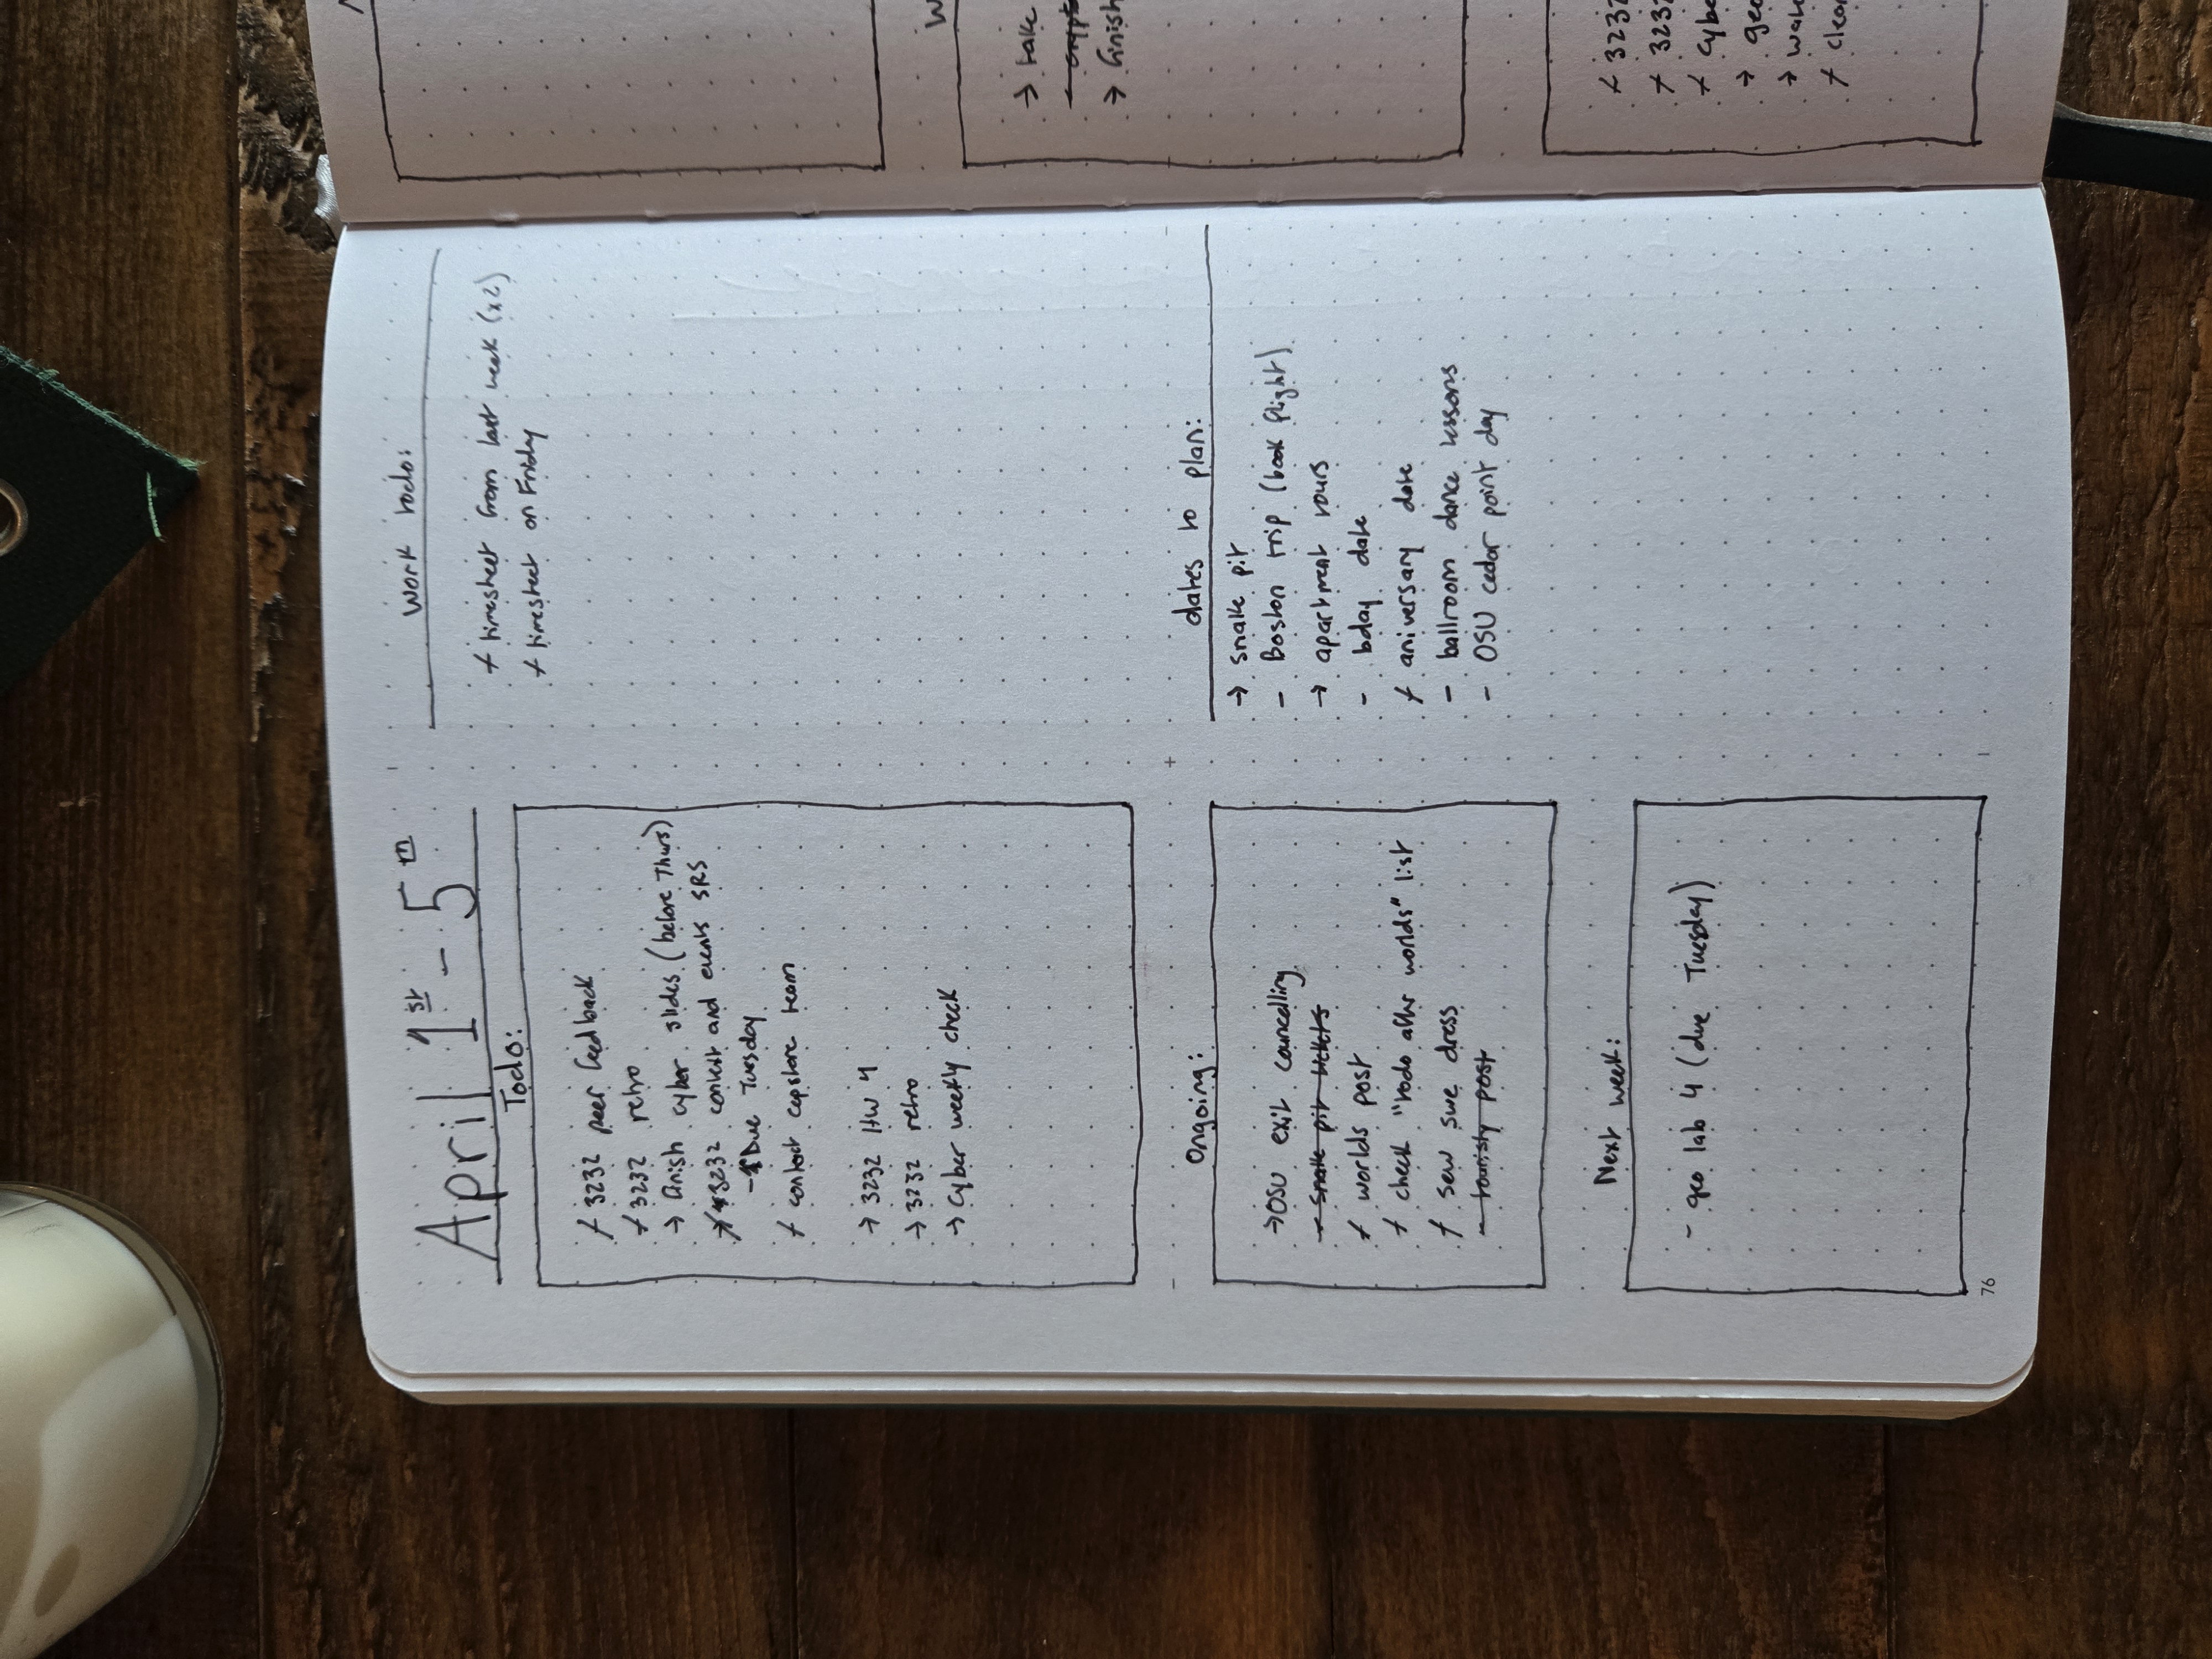 April 1st - 5th
Todo:
+ 3232 peer feedback
+ 3232 retro
→ finish cyber slides (before Thurs)
3232 context and events SRS
- Due Tuesday
+ contact capstone team
→ 3232 HW 4
→ 3232 retro
→ Cyber weekly check
Ongoing:
→ OSU exit councelling
- snake pit tickets
+ worlds post
+ check "todo after worlds" list
+ sew swe dress
- touristy post
Next week:
- geo lab 4 (due Tuesday)
76
work todo:
+ timesheet from last week (x2)
+ timesheet on Friday
dates to plan:
→ snake pit
- Boston trip (book flight)
→ apartment tours
- bday date
+ aniversary date
- ballroom dance lessons
- OSU cedar point day
W
→ take
→ finish
+ 3232
+ 3232
+ cybe
→ geo
→ wa
+ clea